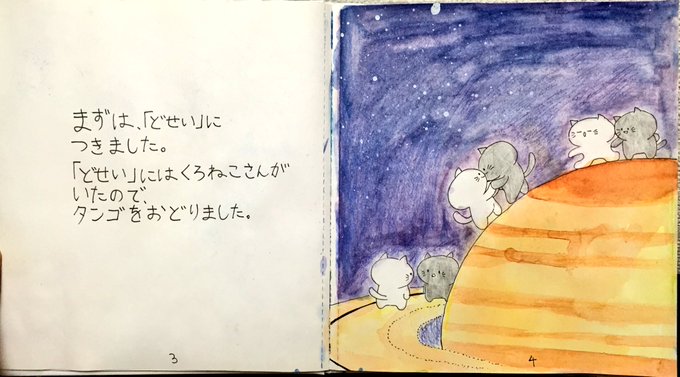 まずは、「どせい」に
つきました。
「どせい」にはくろねこさんが
いたので、
タンゴをおどりました。
3
4